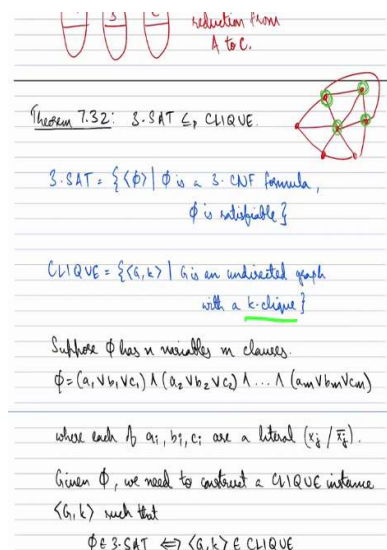 B
reduction from
A to C.
Theorem 7.32: 3-SAT ≤p CLIQUE.
3-SAT = {⟨ϕ⟩ | ϕ is a 3-CNF formula,
ϕ is satisfiable}
CLIQUE = {⟨G,k⟩ | G is an undirected graph
with a k-clique}
Suppose ϕ has n variables m clauses.
ϕ = (a₁ ∨ b₁ ∨ c₁) ∧ (a₂ ∨ b₂ ∨ c₂) ∧ ... ∧ (am ∨ bm ∨ cm)
where each of ai, bi, ci are a literal (xj / x̄j).
Given ϕ, we need to construct a CLIQUE instance
⟨G,k⟩ such that
ϕ ∈ 3-SAT ⟺ ⟨G,k⟩ ∈ CLIQUE